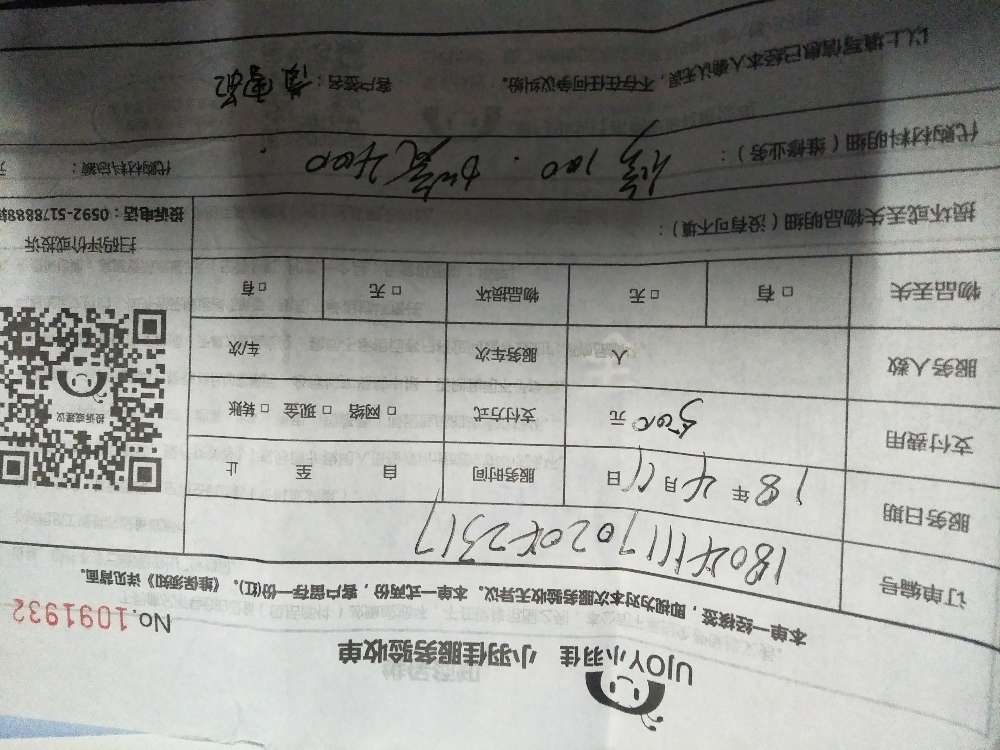 UJOY小羽佳 小羽佳服务验收单
No.1091932
本单一经核签，即视为对本次服务验收无异议。本单一式两份，客户留存一份(红)。《维保须知》详见背面。
订单编号 1804111702042317
服务日期 18年4月11日 服务时间 自 至 止
支付费用 500元 支付方式 □网络 □现金 □转账
服务人数 人 服务车次 车/次
物品丢失 □有 □无 物品损坏 □无 □有
投诉或建议
扫码评价或投诉
投诉电话：0592-5178888转
损坏或丢失物品明细（没有可不填）：
代购材料明细（维修业务）： 修100. 加氟400. 代购材料总额： 元
以上填写信息已经本人确认无误，不存在任何争议纠纷。 客户签名：